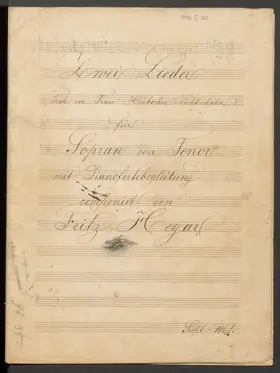 Zwei Lieder
Text von Frau
für
Sopran oder Tenor
mit Pianofortebegleitung
componirt von
Fritz Hegar
Sept.